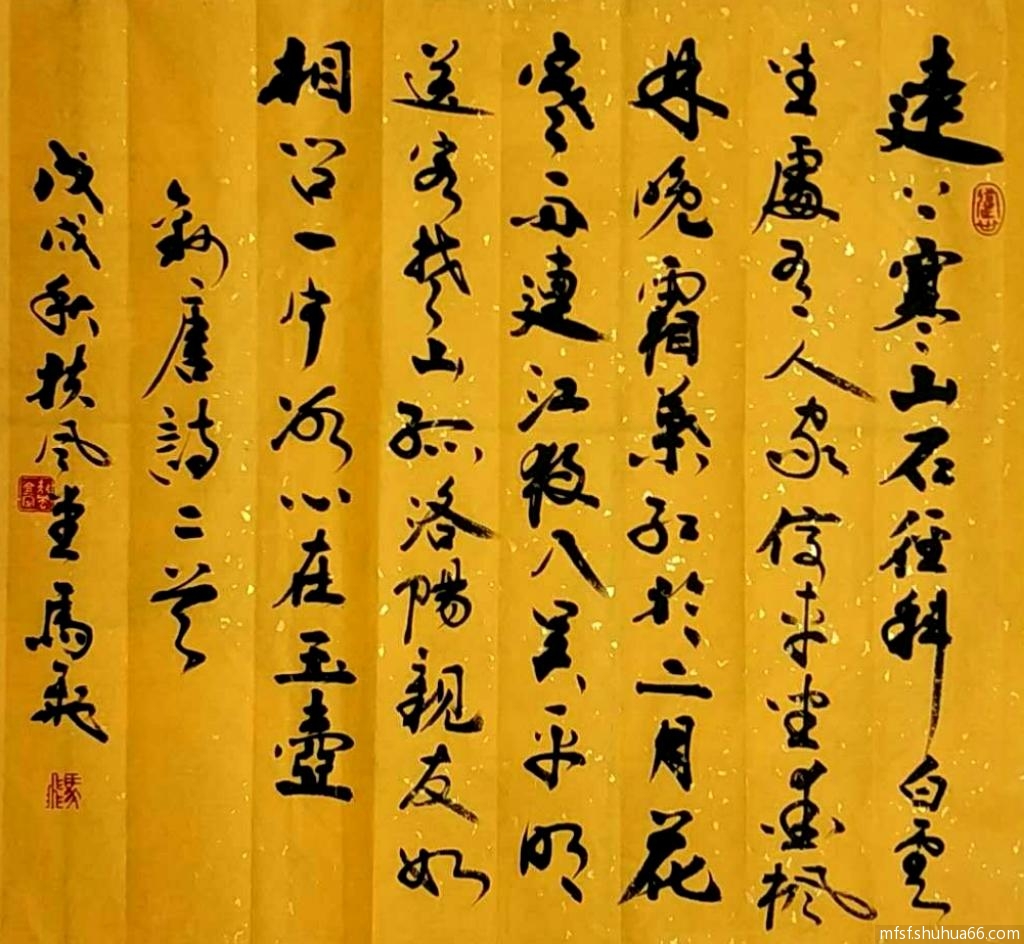 遠上寒山石径斜白雲
生處有人家停車坐愛楓
林晚霜葉紅於二月花
寒雨連江夜入吴平明
送客楚山孤洛陽親友如
相问一片冰心在玉壺
録唐詩二首
戊戌秋扶風堂馬飛
mfsf.shuhua66.com